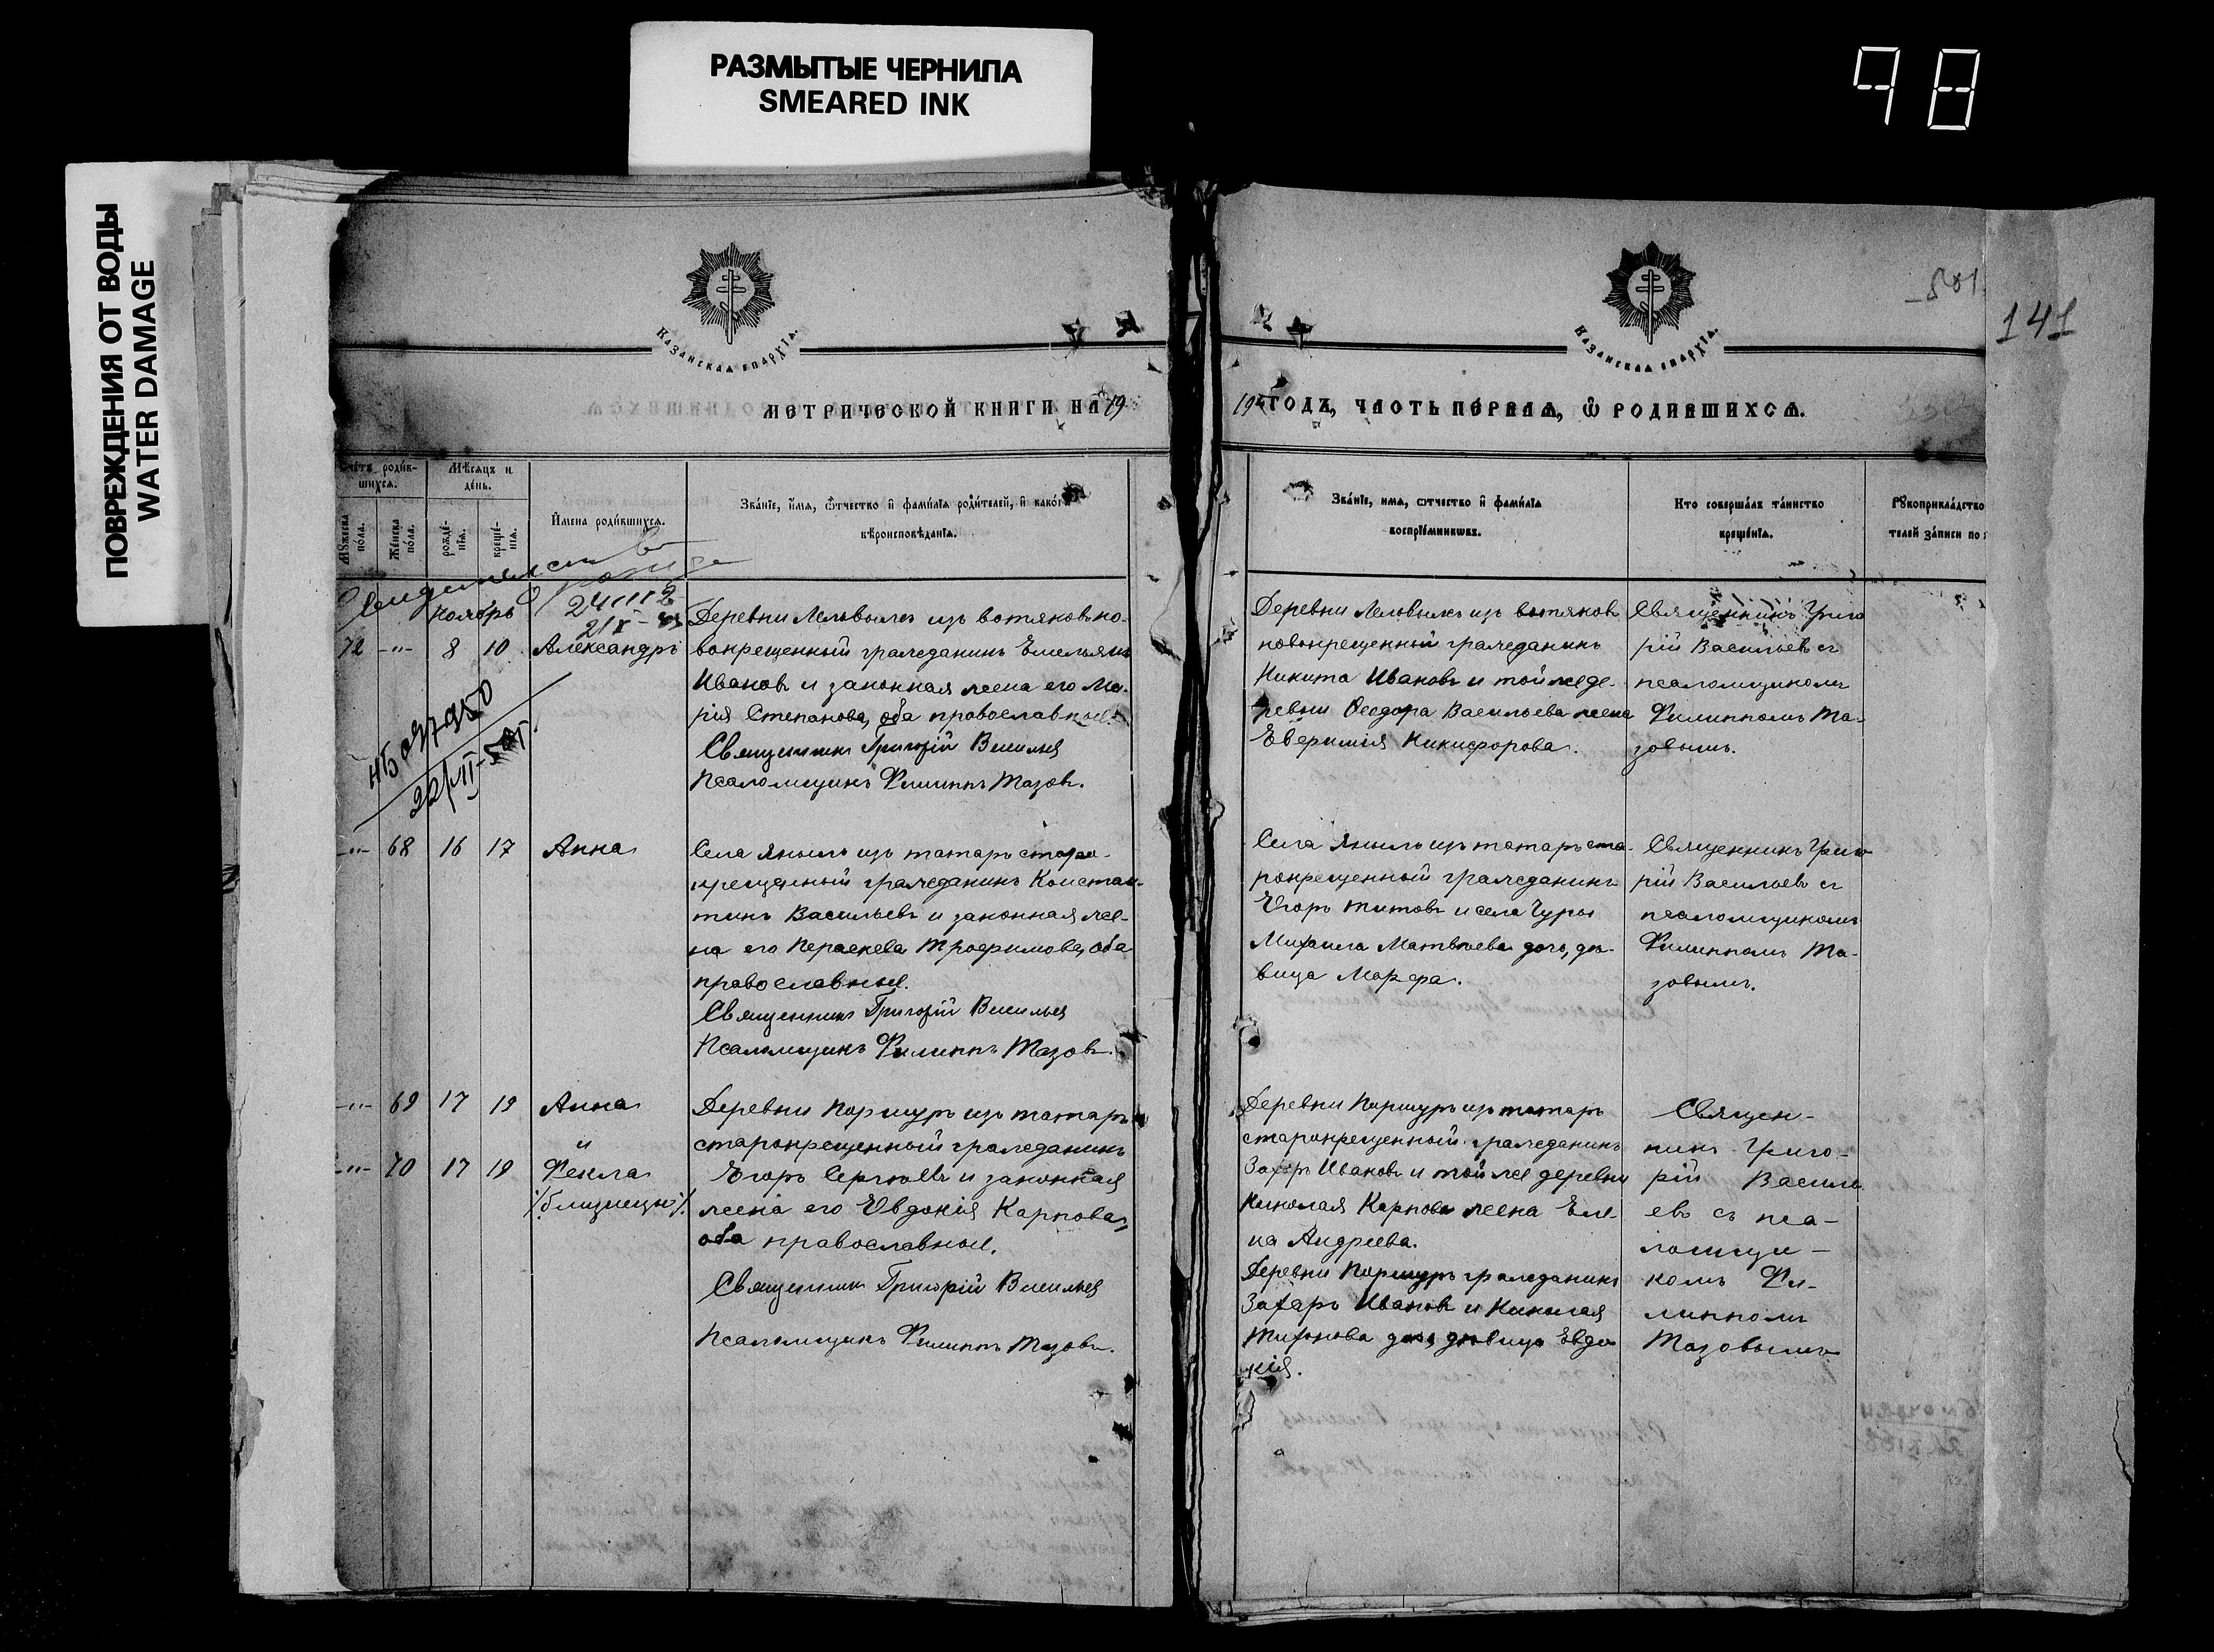 РАЗМЫТЫЕ ЧЕРНИЛА
SMEARED INK
98
ПОВРЕЖДЕНИЯ ОТ ВОДЫ
WATER DAMAGE
141
КАЗАНСКАѦ ЕПАРХІѦ.
КАЗАНСКАѦ ЕПАРХІѦ.
МЕТРИЧЕСКОЙ КНИГИ НА 19
19 ГОДЪ, ЧАСТЬ ПЕРВАѦ, Ѡ РОДИВШИХСѦ.
Счетъ родив-
шихсѧ.
Мѣсяцъ и
день.
Мужеска
пола.
Женска
пола.
рожде-
нїѧ.
креще-
нїѧ.
Имена родившихсѧ.
Званїе, имѧ, ѡтчество и фамилїѧ родителей, и какогѡ
вѣроисповѣданїѧ.
Званїе, имѧ, ѡтчество и фамилїѧ
воспрїемникѡвъ.
Кто совершалъ таинство
крещенїѧ.
Рукоприкладство
телей записи по
Ноябрь
72 -"- 8 10 Александръ
Деревни из вотяковъ но-
вокрещенный гражданинъ Емельянъ
Ивановъ и законная жена его Ма-
рія Степанова, оба православные.
Священникъ Григорій Васильев
Псаломщикъ Филиппъ Тазовъ.
Деревни изъ вотяковъ
новокрещенный гражданинъ
Никита Ивановъ и той же де-
ревни Ѳеодора Васильева жена
Евфимія Никифорова.
Священникъ Григо
рій Васильевъ съ
псаломщикомъ
Филиппомъ Та-
зовымъ.
-"- 68 16 17 Анна
Села Яныль изъ татаръ старо-
крещенный гражданинъ Констан-
тинъ Васильевъ и законная же-
на его Параскева Трофимова, оба
православные.
Священникъ Григорій Васильев
Псаломщикъ Филиппъ Тазовъ.
Села Яныль изъ татаръ ста-
рокрещенный гражданинъ
Егоръ Титовъ и села Чуры
Михаила Матвѣева дочь, дѣ-
вица Марфа.
Священникъ Григо
рій Васильевъ съ
псаломщикомъ
Филиппомъ Та-
зовымъ.
-"- 69 17 19 Анна
и
-"- 70 17 19 Фекла
/близнецы/.
Деревни Поршуръ изъ татаръ
старокрещенный гражданинъ
Егоръ Сергѣевъ и законная
жена его Евдокія Карпова,
оба православные.
Священникъ Григорій Васильев
Псаломщикъ Филиппъ Тазовъ.
Деревни Поршуръ изъ татаръ
старокрещенный гражданинъ
Захаръ Ивановъ и той же деревни
Николая Карпова жена Еле-
на Андреева.
Деревни Поршуръ гражданинъ
Захаръ Ивановъ и Николая
Тихонова дочь, дѣвица Евдо
кія.
Священ-
никъ Григо-
рій Василь
евъ съ пса-
ломщи-
комъ Фи-
липпомъ
Тазовымъ